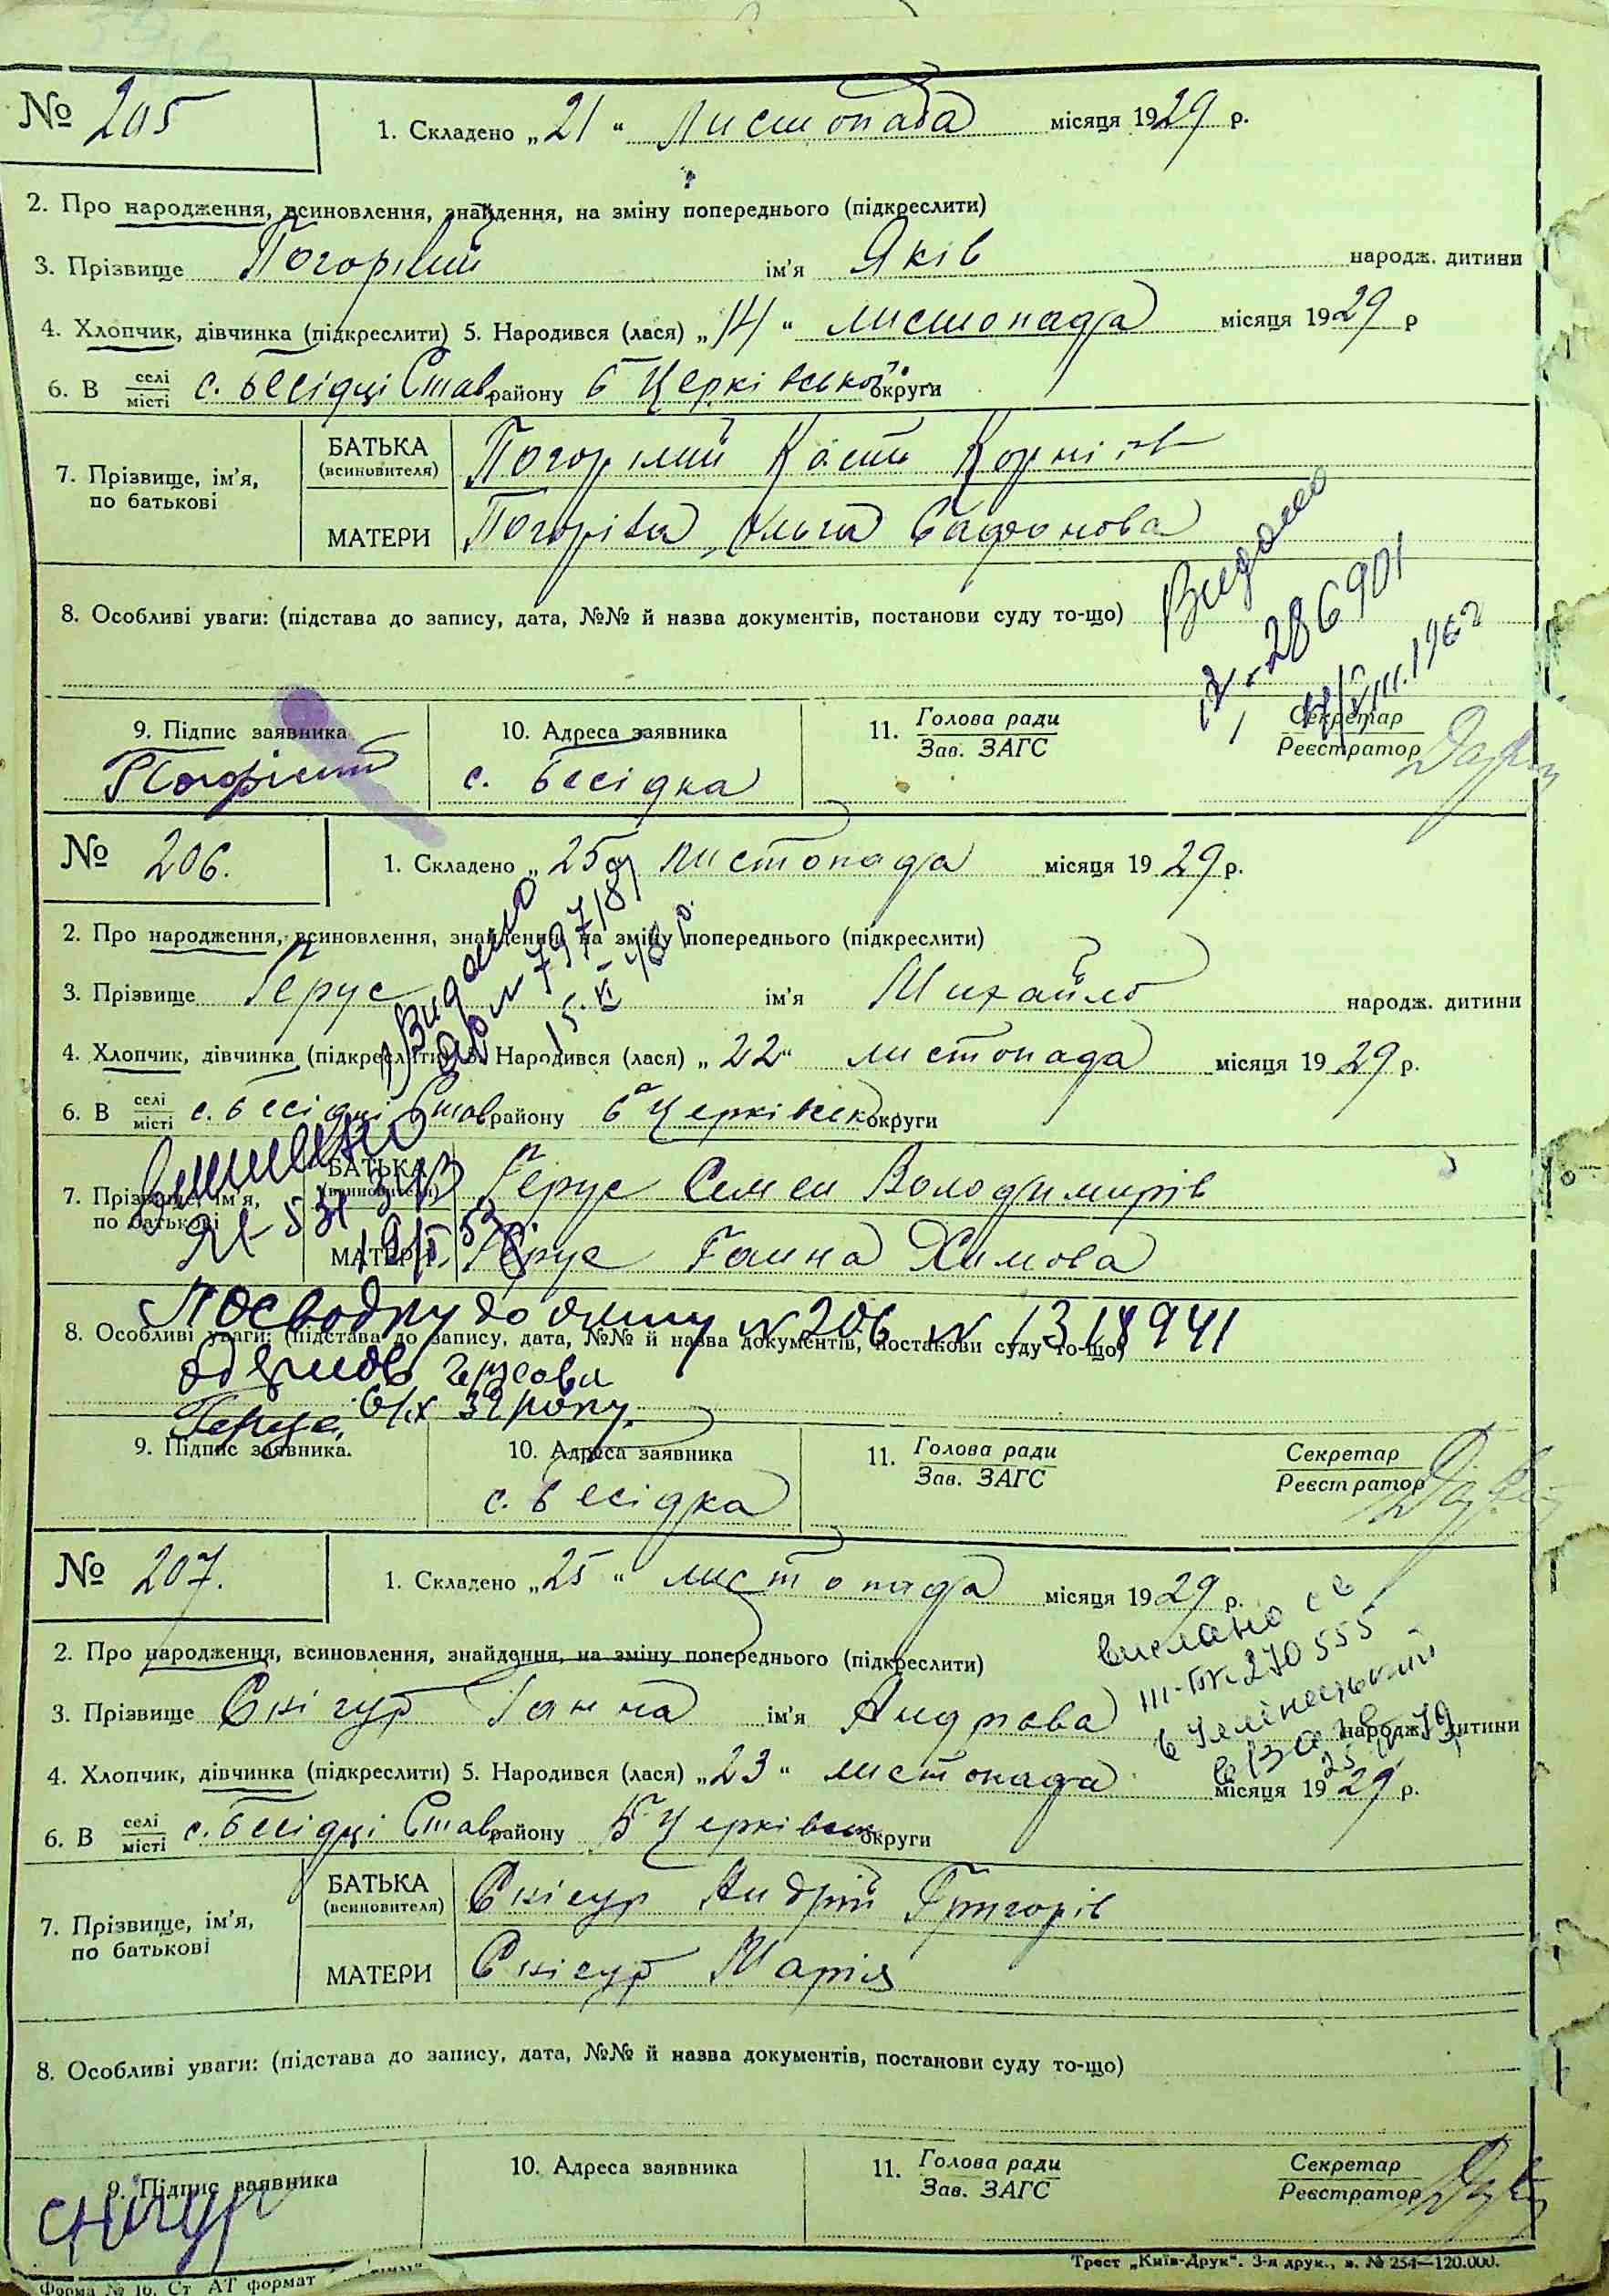 № 205
1. Складено „21“ Листопада місяця 1929 р.
2. Про народження, всиновлення, знайдення, на зміну попереднього (підкреслити)
3. Прізвище Погорілий ім'я Яків народж. дитини
4. Хлопчик, дівчинка (підкреслити) 5. Народився (лася) „14“ листопада місяця 1929 р
6. В селі місті с. Бесідці Став району Б Церківської округи
7. Прізвище, ім'я, по батькові
БАТЬКА (всиновителя) Погорілий Кость Корніїв
МАТЕРИ Погоріла, Ольга Сафонова
Видано
286901
VIII.1962
8. Особливі уваги: (підстава до запису, дата, №№ й назва документів, постанови суду то-що)
9. Підпис заявника
10. Адреса заявника
11. Голова ради
Зав. ЗАГС
Секретар
Реєстратор
Погорілий
с. Бесідка
№ 206.
1. Складено „25“ листопада місяця 1929 р.
2. Про народження, всиновлення, знайдення, на зміну попереднього (підкреслити)
3. Прізвище Герус ім'я Михайло народж. дитини
Видано
№ 797181
15.XI-48 р.
4. Хлопчик, дівчинка (підкреслити) 5. Народився (лася) „22“ листопада місяця 1929 р.
6. В селі місті с. Бесідці Став району Б Церківськ округи
7. Прізвище, ім'я, по батькові
БАТЬКА (всиновителя) Герус Семен Володимирів
МАТЕРИ Герус Ганна Химова
Посводку до акту № 206 № 1318941
8. Особливі уваги: (підстава до запису, дата, №№ й назва документів, постанови суду то-що)
6/ІХ 32 року.
Герус
9. Підпис заявника.
10. Адреса заявника
11. Голова ради
Зав. ЗАГС
Секретар
Реєстратор
с. Бесідка
№ 207.
1. Складено „25“ листопада місяця 1929 р.
2. Про народження, всиновлення, знайдення, на зміну попереднього (підкреслити)
вислано св
III-БК 270555
3. Прізвище Снігур Ганна ім'я Андрієва народж. дитини
4. Хлопчик, дівчинка (підкреслити) 5. Народився (лася) „23“ листопада місяця 1929 р.
6. В селі місті с. Бесідці Став району Б Церківськ округи
7. Прізвище, ім'я, по батькові
БАТЬКА (всиновителя) Снігур Андрій Григорів
МАТЕРИ Снігур Марія
8. Особливі уваги: (підстава до запису, дата, №№ й назва документів, постанови суду то-що)
9. Підпис заявника
10. Адреса заявника
11. Голова ради
Зав. ЗАГС
Секретар
Реєстратор
Снігур
Трест „Київ-Друк“. 3-я друк., з. № 254—120.000.
Форма № 16. Ст АТ формат